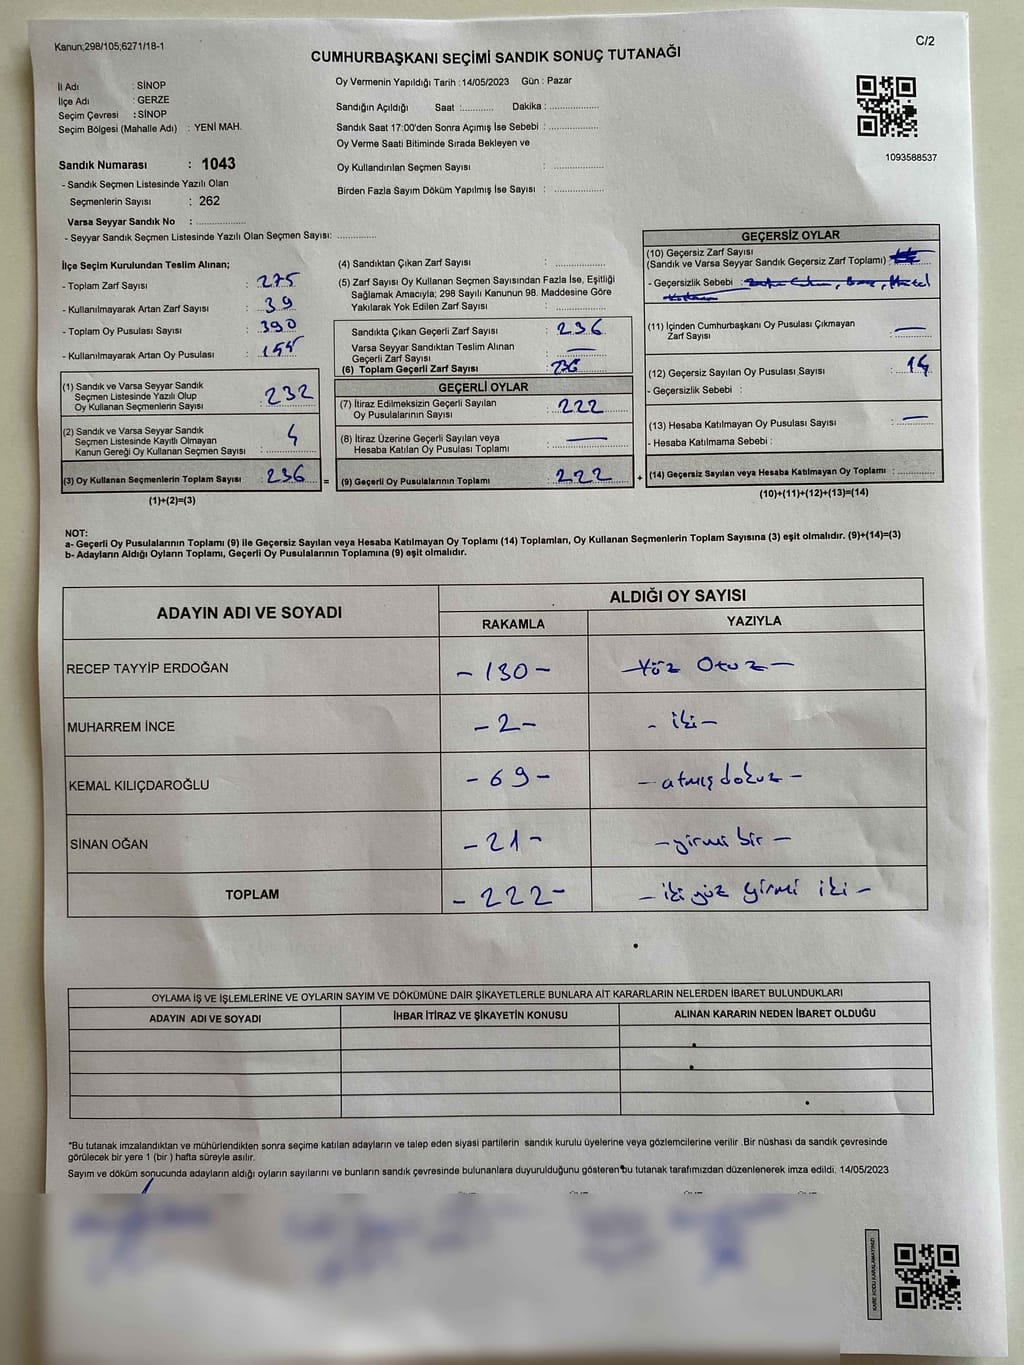 Kanun;298/105;6271/18-1
C/2
CUMHURBAŞKANI SEÇİMİ SANDIK SONUÇ TUTANAĞI
İl Adı : SİNOP
İlçe Adı : GERZE
Seçim Çevresi : SİNOP
Seçim Bölgesi (Mahalle Adı) : YENİ MAH.
Sandık Numarası : 1043
- Sandık Seçmen Listesinde Yazılı Olan
Seçmenlerin Sayısı : 262
Varsa Seyyar Sandık No : ..............
- Seyyar Sandık Seçmen Listesinde Yazılı Olan Seçmen Sayısı: ............
Oy Vermenin Yapıldığı Tarih : 14/05/2023 Gün : Pazar
Sandığın Açıldığı Saat :........... Dakika : ..............
Sandık Saat 17:00'den Sonra Açımış İse Sebebi : ..............
Oy Verme Saati Bitiminde Sırada Bekleyen ve
Oy Kullandırılan Seçmen Sayısı : ..............
Birden Fazla Sayım Döküm Yapılmış İse Sayısı : ..............
1093588537
İlçe Seçim Kurulundan Teslim Alınan;
- Toplam Zarf Sayısı : 275
- Kullanılmayarak Artan Zarf Sayısı : 39
- Toplam Oy Pusulası Sayısı : 390
- Kullanılmayarak Artan Oy Pusulası :
(1) Sandık ve Varsa Seyyar Sandık
Seçmen Listesinde Yazılı Olup
Oy Kullanan Seçmenlerin Sayısı : 232
(2) Sandık ve Varsa Seyyar Sandık
Seçmen Listesinde Kayıtlı Olmayan
Kanun Gereği Oy Kullanan Seçmen Sayısı : 4
(3) Oy Kullanan Seçmenlerin Toplam Sayısı : 236
(1)+(2)=(3)
(4) Sandıktan Çıkan Zarf Sayısı : ..............
(5) Zarf Sayısı Oy Kullanan Seçmen Sayısından Fazla İse, Eşitliği
Sağlamak Amacıyla; 298 Sayılı Kanunun 98. Maddesine Göre
Yakılarak Yok Edilen Zarf Sayısı : ..............
Sandıkta Çıkan Geçerli Zarf Sayısı : 236
Varsa Seyyar Sandıktan Teslim Alınan
Geçerli Zarf Sayısı : —
(6) Toplam Geçerli Zarf Sayısı : 236
GEÇERLİ OYLAR
(7) İtiraz Edilmeksizin Geçerli Sayılan
Oy Pusulalarının Sayısı : 222
(8) İtiraz Üzerine Geçerli Sayılan veya
Hesaba Katılan Oy Pusulası Toplamı : —
(9) Geçerli Oy Pusulalarının Toplamı : 222
=
+
GEÇERSİZ OYLAR
(10) Geçersiz Zarf Sayısı
(Sandık ve Varsa Seyyar Sandık Geçersiz Zarf Toplamı)
- Geçersizlik Sebebi :
(11) İçinden Cumhurbaşkanı Oy Pusulası Çıkmayan
Zarf Sayısı : —
(12) Geçersiz Sayılan Oy Pusulası Sayısı : 14
- Geçersizlik Sebebi :
(13) Hesaba Katılmayan Oy Pusulası Sayısı : —
- Hesaba Katılmama Sebebi :
(14) Geçersiz Sayılan veya Hesaba Katılmayan Oy Toplamı : ..........
(10)+(11)+(12)+(13)=(14)
NOT:
a- Geçerli Oy Pusulalarının Toplamı (9) ile Geçersiz Sayılan veya Hesaba Katılmayan Oy Toplamı (14) Toplamları, Oy Kullanan Seçmenlerin Toplam Sayısına (3) eşit olmalıdır. (9)+(14)=(3)
b- Adayların Aldığı Oyların Toplamı, Geçerli Oy Pusulalarının Toplamına (9) eşit olmalıdır.
ADAYIN ADI VE SOYADI
ALDIĞI OY SAYISI
RAKAMLA YAZIYLA
RECEP TAYYİP ERDOĞAN - 130 - - Yüz Otuz -
MUHARREM İNCE - 2 - - iki -
KEMAL KILIÇDAROĞLU - 69 - - atmış dokuz -
SİNAN OĞAN - 21 - - yirmi bir -
TOPLAM - 222 - - iki yüz yirmi iki -
OYLAMA İŞ VE İŞLEMLERİNE VE OYLARIN SAYIM VE DÖKÜMÜNE DAİR ŞİKAYETLERLE BUNLARA AİT KARARLARIN NELERDEN İBARET BULUNDUKLARI
ADAYIN ADI VE SOYADI İHBAR İTİRAZ VE ŞİKAYETİN KONUSU ALINAN KARARIN NEDEN İBARET OLDUĞU
*Bu tutanak imzalandıktan ve mühürlendikten sonra seçime katılan adayların ve talep eden siyasi partilerin sandık kurulu üyelerine veya gözlemcilerine verilir .Bir nüshası da sandık çevresinde
görülecek bir yere 1 (bir ) hafta süreyle asılır.
Sayım ve döküm sonucunda adayların aldığı oyların sayılarını ve bunların sandık çevresinde bulunanlara duyurulduğunu gösteren bu tutanak tarafımızdan düzenlenerek imza edildi. 14/05/2023
KARE KODU KARALAMAYINIZ!